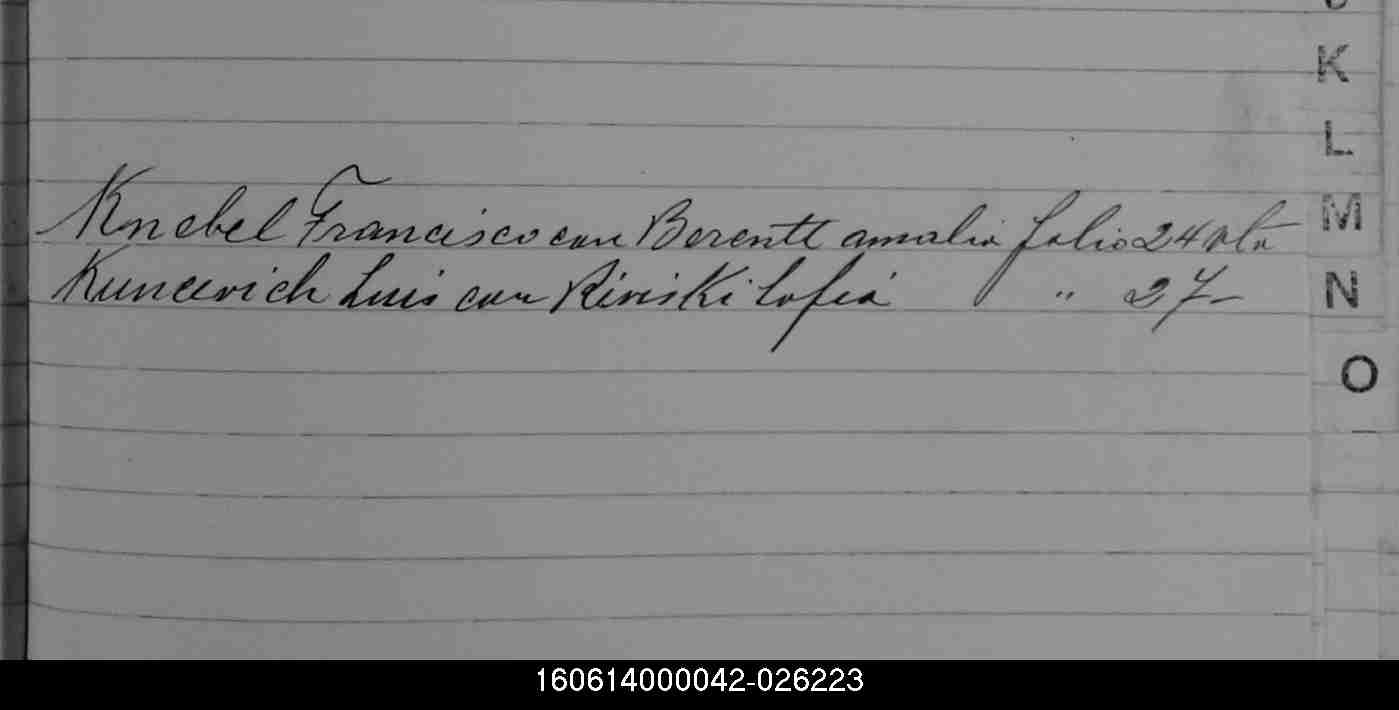 K
L
M
N
O
Knebel Francisco con Berentt amalia folio 24 vta
Kuncevich Luis con Riviski Sofia " 27-
160614000042-026223